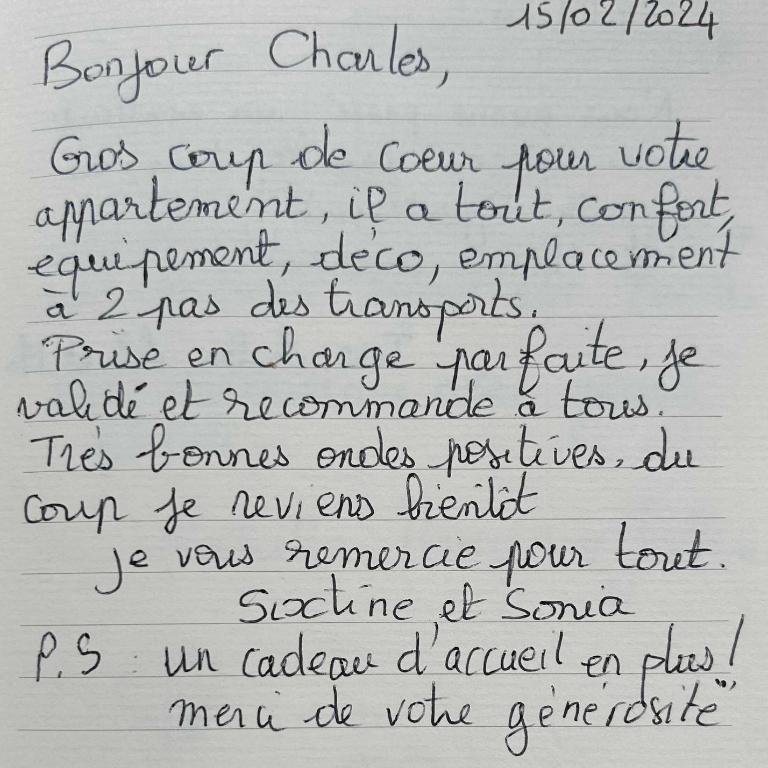 15/02/2024
Bonjour Charles,
Gros coup de coeur pour votre
appartement, il a tout, confort,
equipement, déco, emplacement
à 2 pas des transports.
Prise en charge parfaite, je
validé et recommande à tous.
Très bonnes ondes positives, du
coup je reviens bientôt
je vous remercie pour tout.
Sixtine et Sonia
P.S : un cadeau d'accueil en plus !
merci de votre générosité